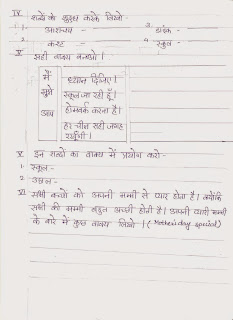 IV शब्दों को शुद्ध करके लिखो -
1. आशच्य - 3. ठंक -
2. कस्ट - 4. सकुल -
V सही वाक्य बनाओ ।
मैं ध्यान दीजिए ।
मुझे स्कूल जा रही हूँ ।
आप होमवर्क करना है ।
हर चीज सही जगह रखूँगी ।
V. इन शब्दों का वाक्य में प्रयोग करो-
1. स्कूल -
2. उछल -
VI सभी बच्चों को अपनी मम्मी से प्यार होता है । क्योंकि
सभी की मम्मी बहुत अच्छी होती है । अपनी प्यारी मम्मी
के बारे में कुछ वाक्य लिखो । ( Mother's day special )